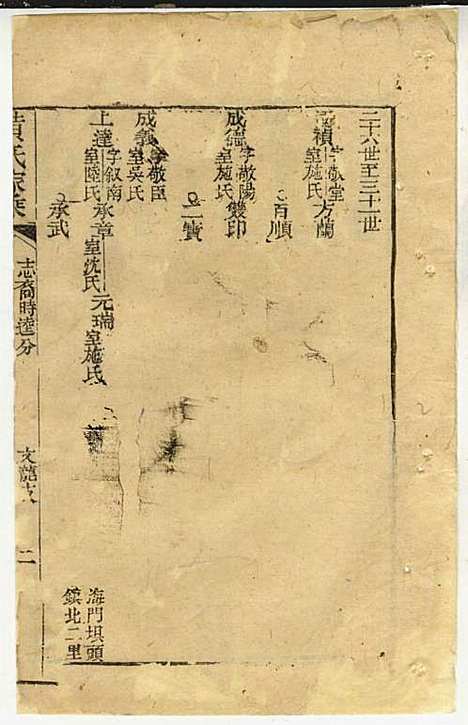 二十六世至三十一世
禎 字敬堂 室施氏 方蘭
百順
成德 字敬陽 室施氏 雙印
二寶
成義 字敬臣 室吳氏
上達 字叙南 室陸氏 承章 室沈氏 元瑞 室施氏
承武
海門垻頭
鎮北二里
黃氏家乘
志裔時達分
文龍支
二